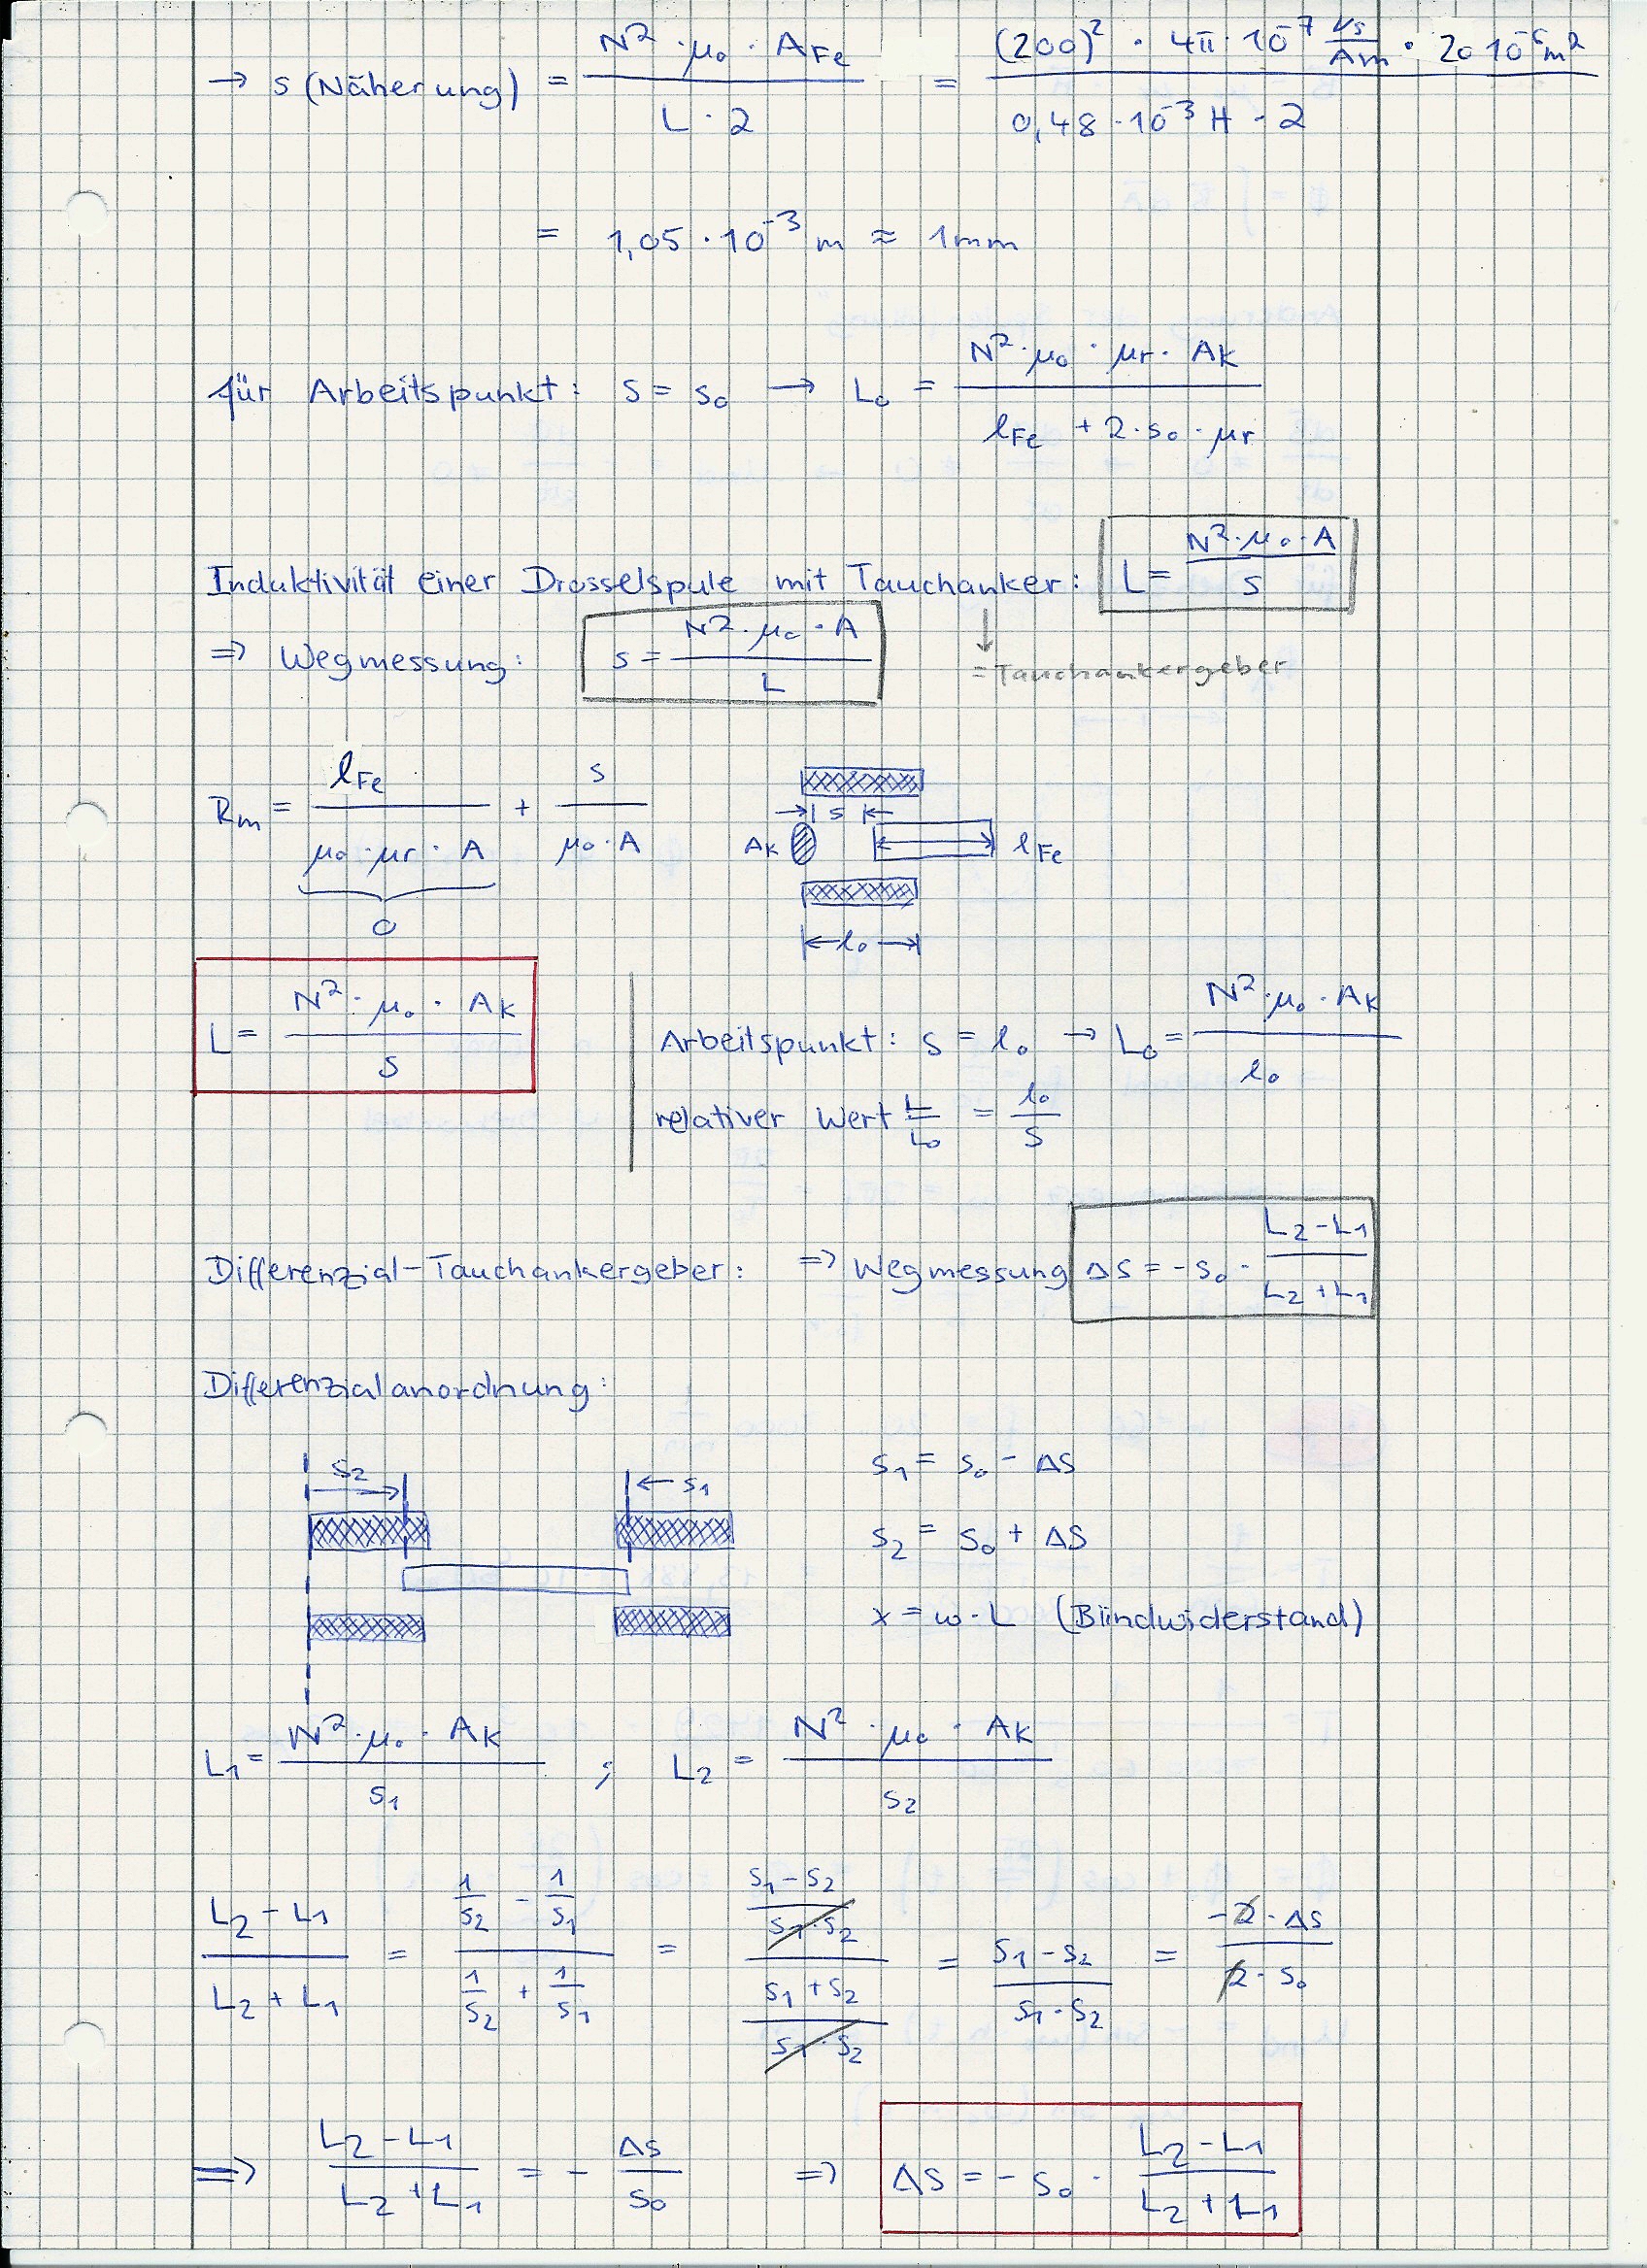 → s (Näherung) = N² · μ₀ · A_Fe / L · 2 = (200)² · 4π · 10⁻⁷ Vs/Am · 20 10⁻⁶ m² / 0,48 · 10⁻³ H · 2
= 1,05 · 10⁻³ m ≈ 1mm
für Arbeitspunkt: s = s₀ → L₀ = N² · μ₀ · μr · A_K / l_Fe + 2 · s₀ · μr
Induktivität einer Drosselspule mit Tauchanker: L = N² · μ₀ · A / s
⇒ Wegmessung: s = N² · μ₀ · A / L
↓ = Tauchankergeber
R_m = l_Fe / μ₀ · μr · A + s / μ₀ · A
0
→| s |←
A_K
l_Fe
|← l₀ →|
L = N² · μ₀ · A_K / s
Arbeitspunkt: s = l₀ → L₀ = N² · μ₀ · A_K / l₀
relativer Wert L/L₀ = l₀/s
Differenzial-Tauchankergeber: ⇒ Wegmessung Δs = - s₀ · L₂ - L₁ / L₂ + L₁
Differenzialanordnung:
s₂
← s₁
s₁ = s₀ - Δs
s₂ = s₀ + Δs
x = ω · L (Blindwiderstand)
L₁ = N² · μ₀ · A_K / s₁ ; L₂ = N² · μ₀ · A_K / s₂
L₂ - L₁ / L₂ + L₁ = 1/s₂ - 1/s₁ / 1/s₂ + 1/s₁ = s₁ - s₂ / s₁ · s₂ / s₁ + s₂ / s₁ · s₂ = s₁ - s₂ / s₁ · s₂ = -2 · Δs / 2 · s₀
⇒ L₂ - L₁ / L₂ + L₁ = - Δs / s₀ ⇒ Δs = - s₀ · L₂ - L₁ / L₂ + L₁